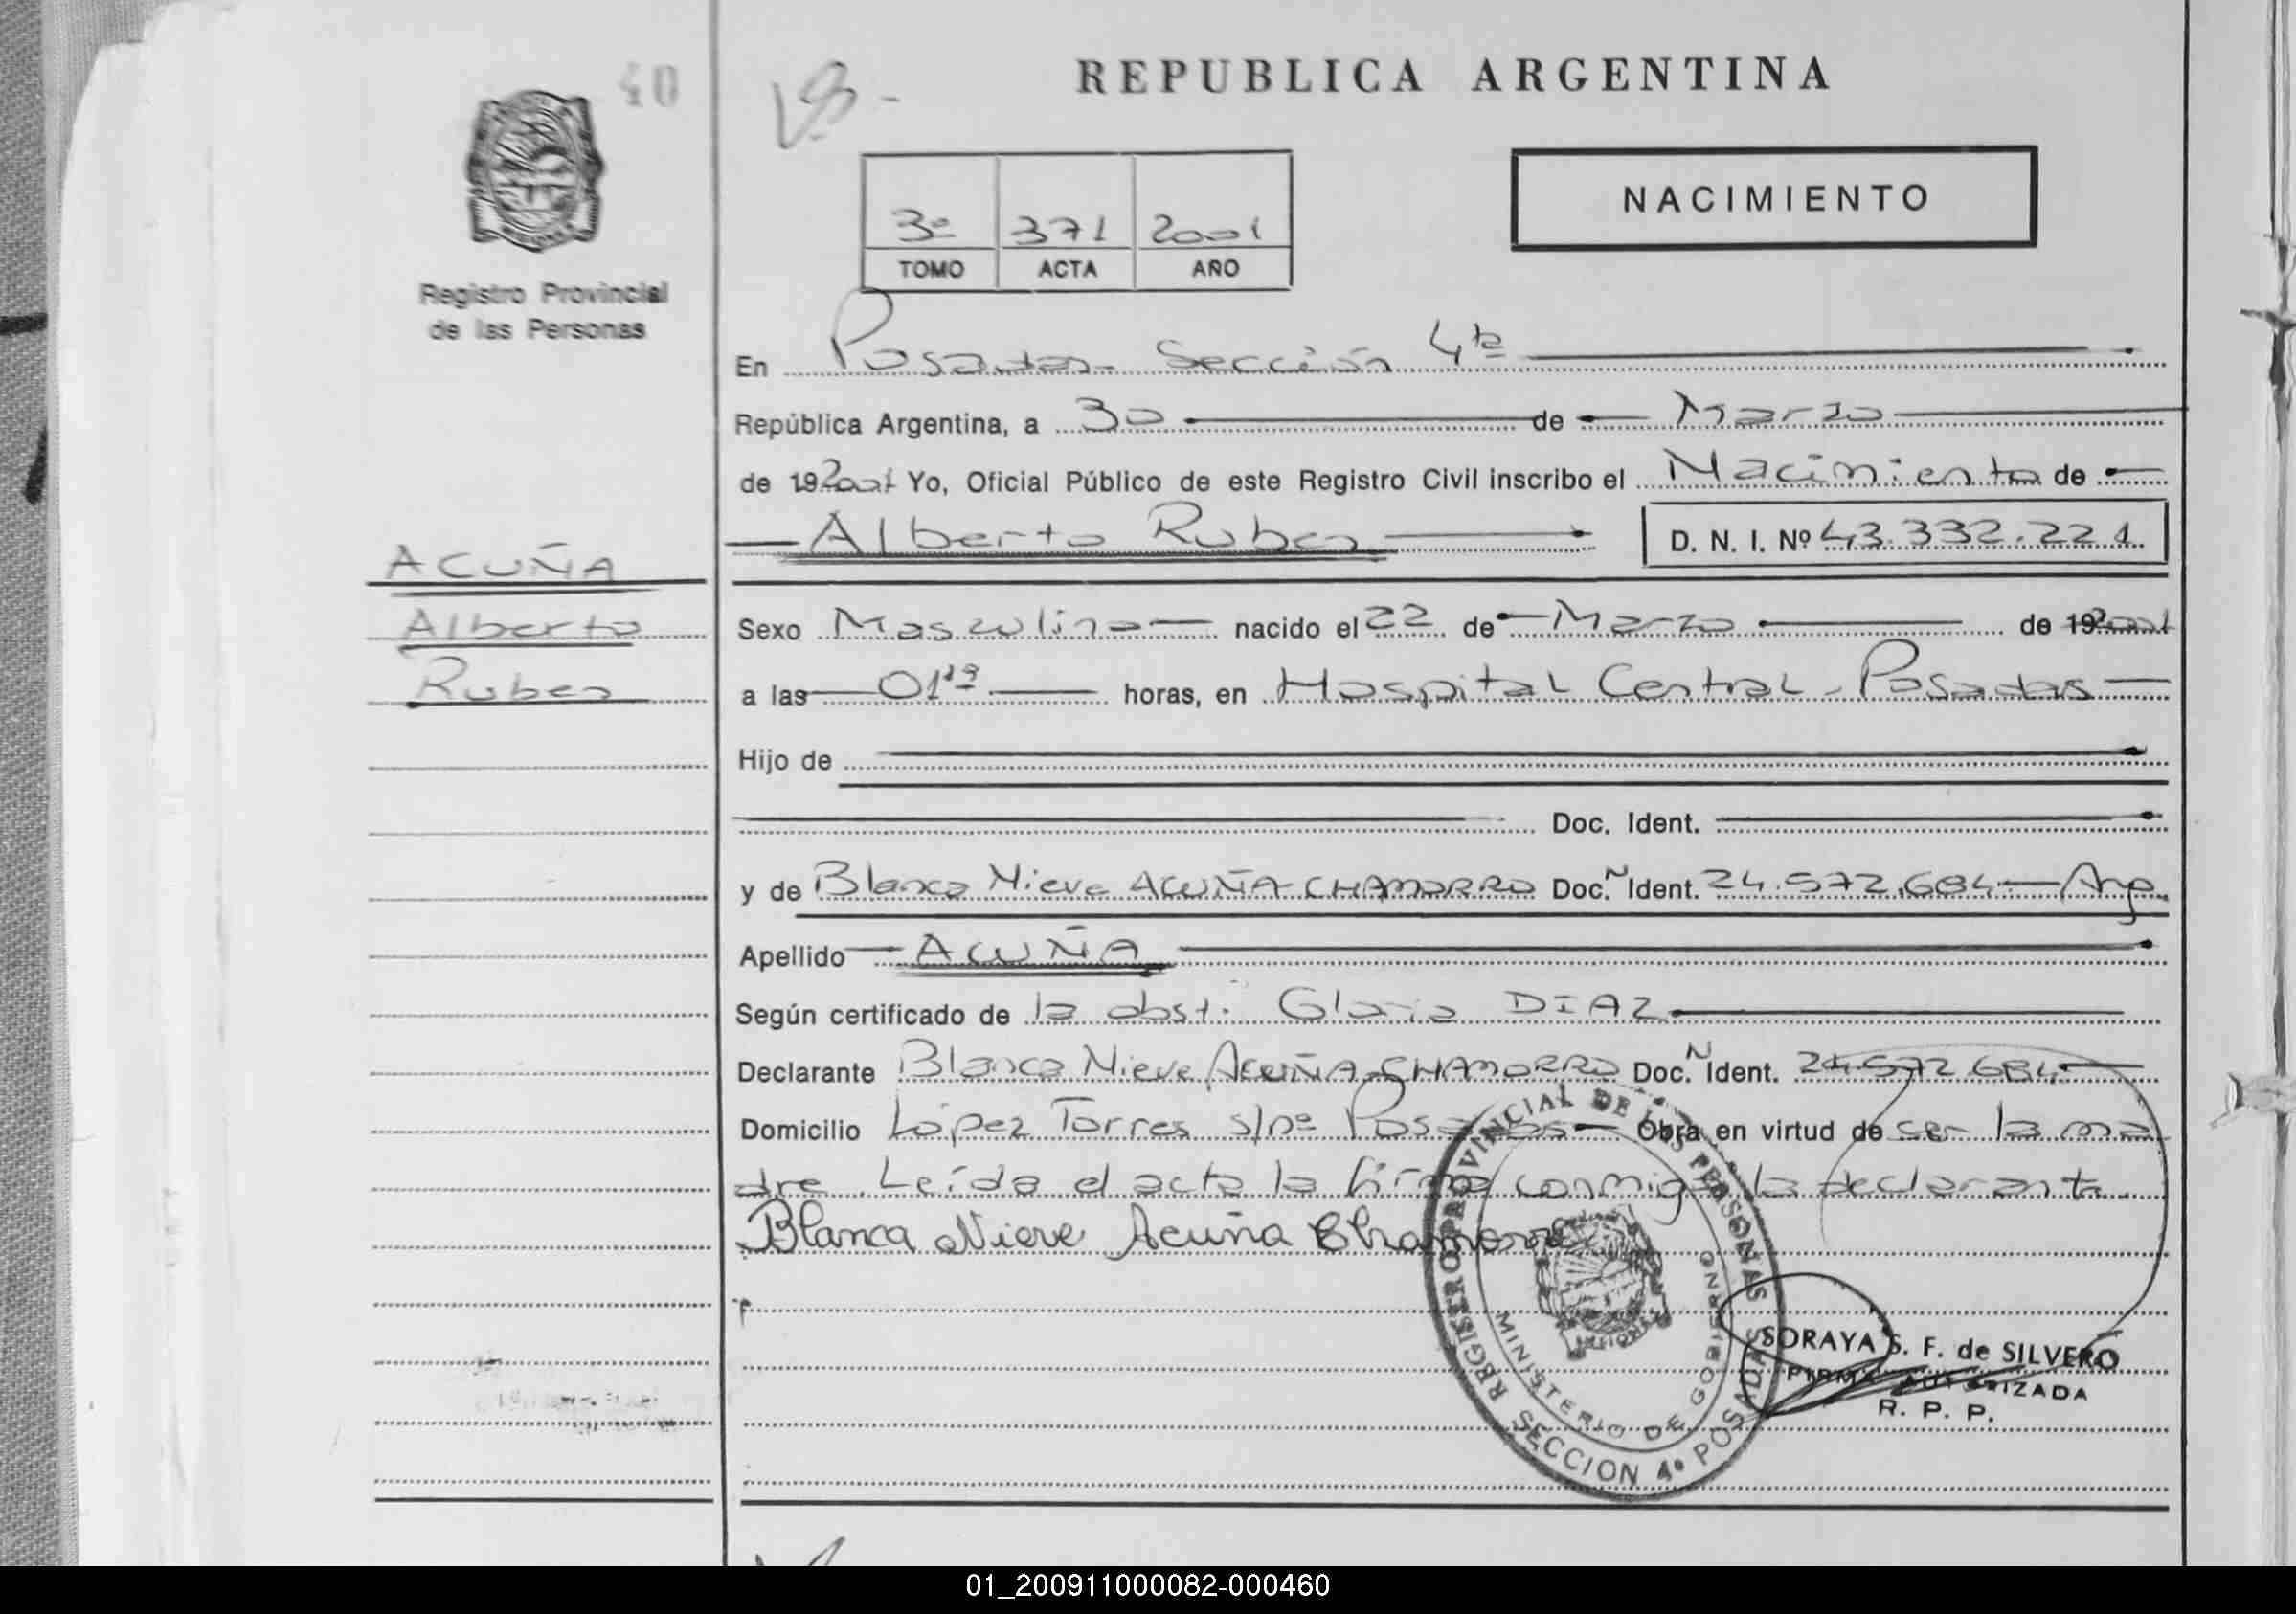 40
REPUBLICA ARGENTINA
3º 371 2001
TOMO ACTA AÑO
NACIMIENTO
Registro Provincial
de las Personas
En Posadas- Sección 4ta
República Argentina, a 30 de Marzo
de 192001 Yo, Oficial Público de este Registro Civil inscribo el Nacimiento de
Alberto Ruben D. N. I. Nº 43.332.221
ACUÑA
Alberto
Ruben
Sexo Masculino nacido el 22 de Marzo de 192001
a las 01 horas, en Hospital Central - Posadas
Hijo de
Doc. Ident.
y de Blanca Nieve ACUÑA CHAMORRO Doc. N Ident. 24.572.684 Arg.
Apellido ACUÑA
Según certificado de la obst. Gloria DIAZ
Declarante Blanca Nieve ACUÑA CHAMORRO Doc. N Ident. 24.572.684
Domicilio López Torres s/nº Posadas Obra en virtud de ser la ma
dre. Leída el acta la firma conmigo la declarante
Blanca Nieve Acuña Chamorro
REGISTRO PROVINCIAL DE LAS PERSONAS
MINISTERIO DE GOBIERNO
SECCION 4º POSADAS
SORAYA S. F. de SILVERO
FIRMA AUTORIZADA
R. P. P.
01_200911000082-000460